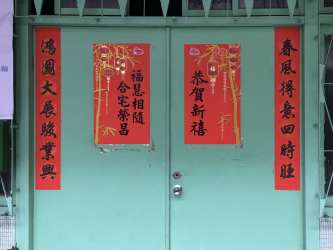 春風得意四時旺
恭賀新禧
福慧相隨
合宅榮昌
鴻圖大展駿業興